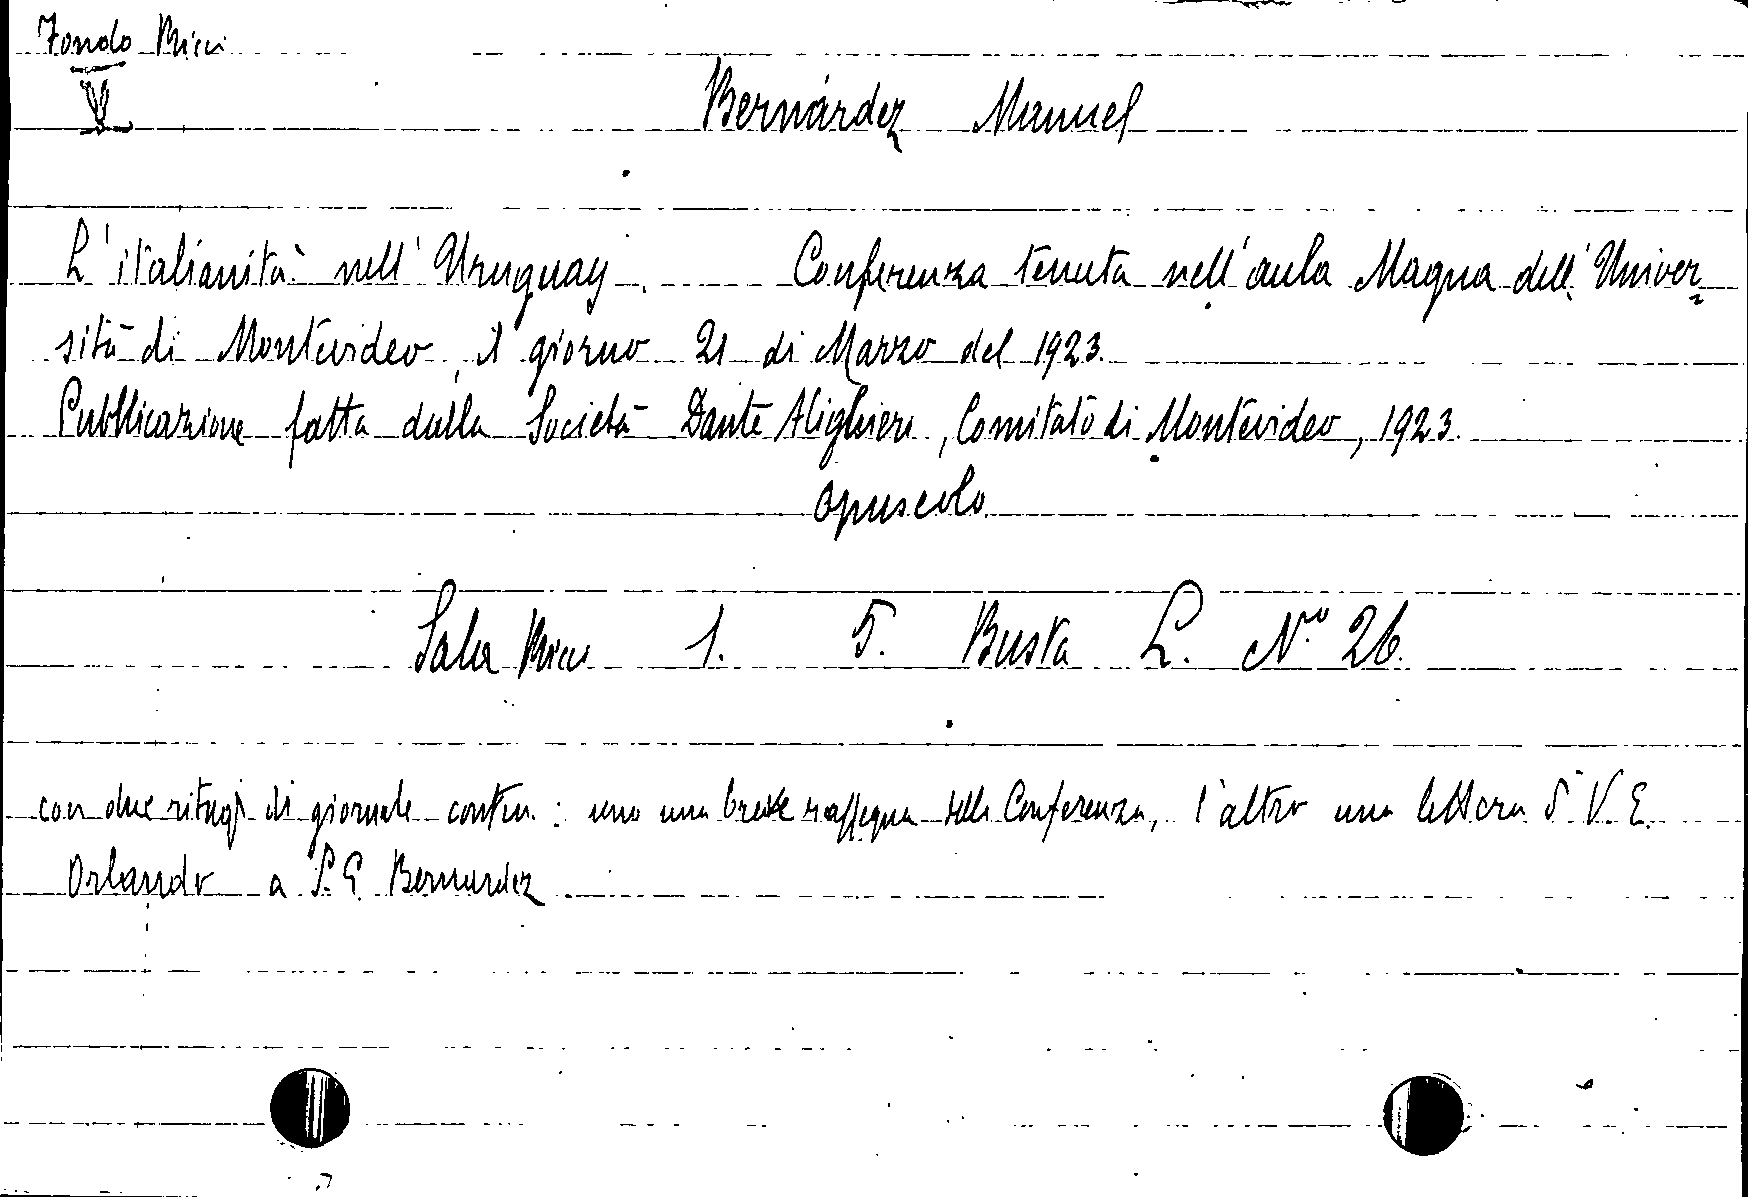 Fondo Ricci
V
Bernárdez Manuel
L'italianità nell'Uruguay. Conferenza tenuta nell'aula Magna dell'Univer=
sità di Montevideo, il giorno 21 di Marzo del 1923.
Pubblicazione fatta dalla Società Dante Alighieri, Comitato di Montevideo, 1923.
opuscolo
Sala Ricci 1. 5. Busta L. N.º 26.
con due ritagli di giornale conten.: uno una breve rassegna della Conferenza, l'altro una lettera di V. E.
Orlando a S. E. Bernardez